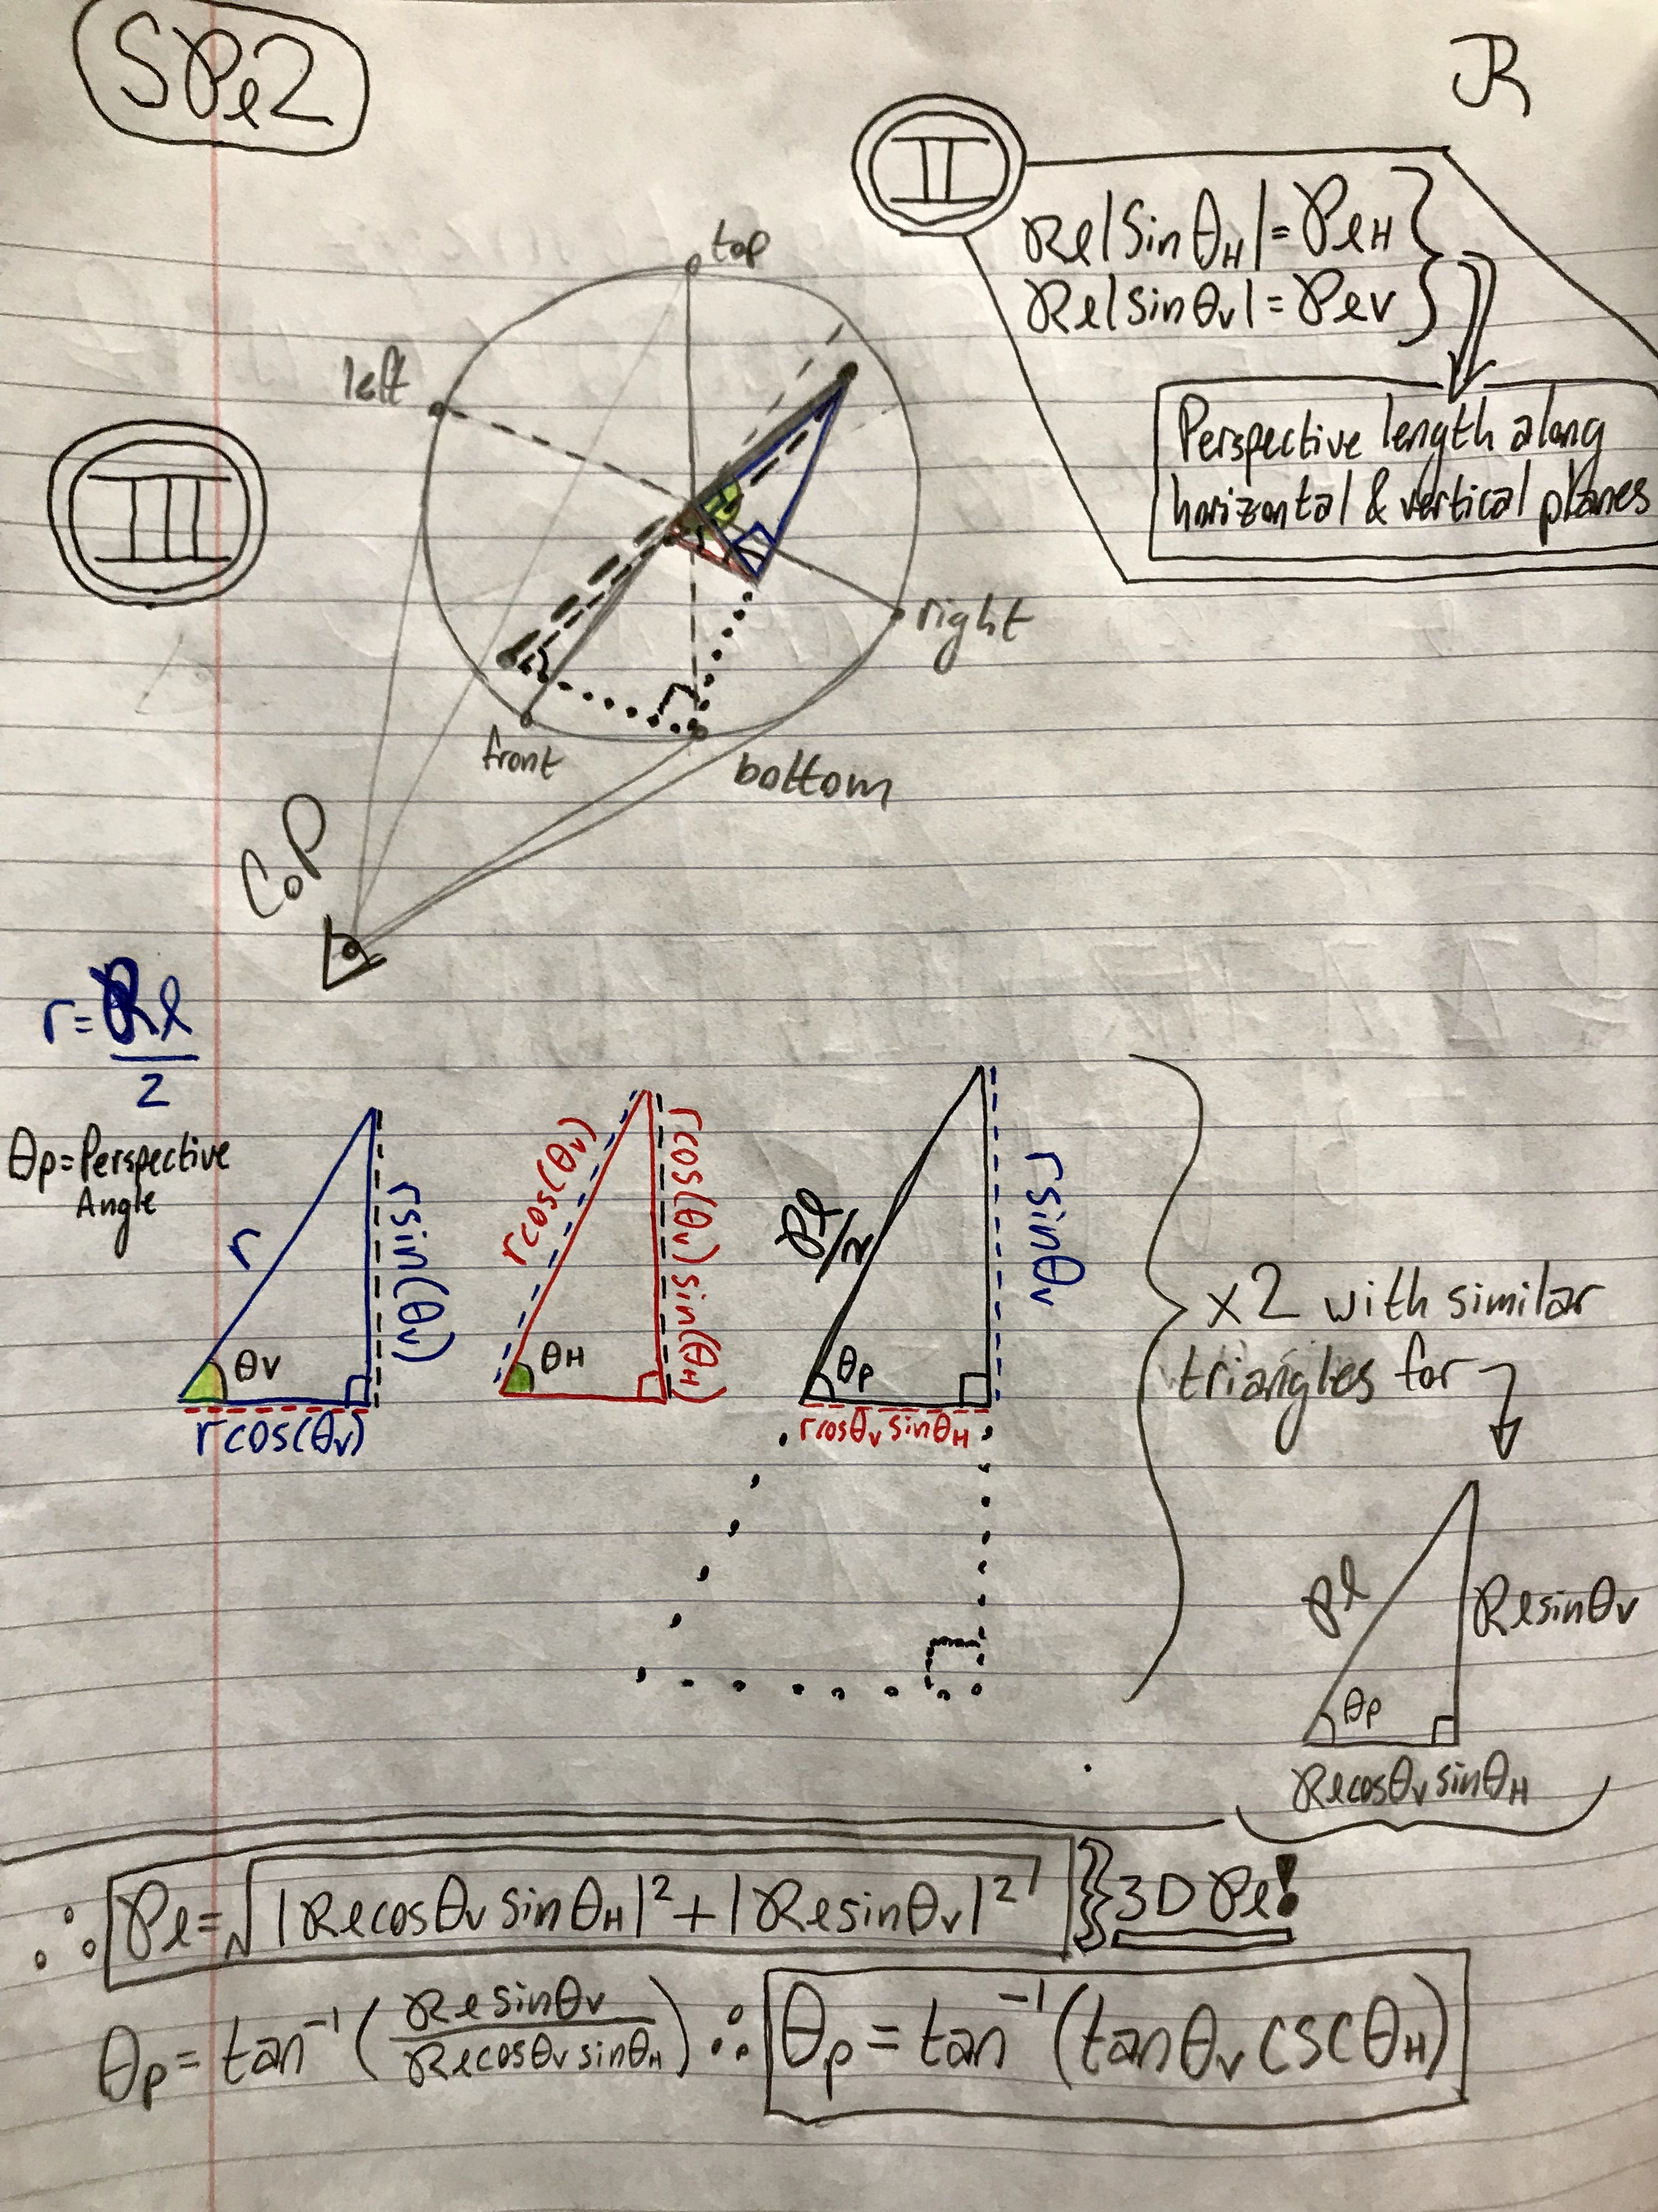 SPl2
R
II
Rl|Sin θH| = PlH
Rl|sin θv| = Plv
Perspective length along
horizontal & vertical planes
top
left
III
right
front
bottom
CoP
r = Rl/2
θp = Perspective
Angle
r
rsin(θv)
θv
rcos(θv)
rcos(θv)
rcos(θv) sin(θH)
θH
Pl/2
rsinθv
θp
rcosθv sinθH
x2 with similar
triangles for
Pl
Rlsinθv
θp
Rlcosθv sinθH
∴ Pl = √|Rlcosθv sinθH|² + |Rlsinθv|² } 3D Pl!
θp = tan⁻¹ (Rlsinθv / Rlcosθv sinθH) ∴ θp = tan⁻¹ (tanθv cscθH)